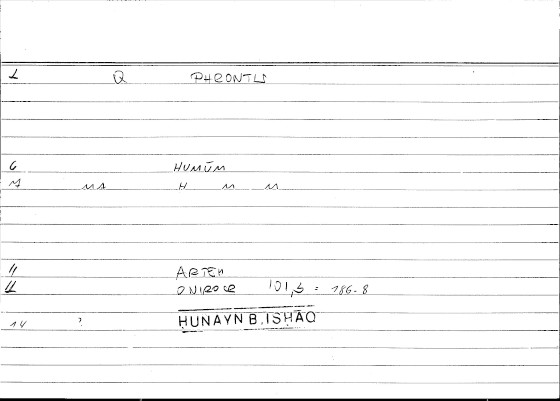 1 Q PHRONTIS
6 HUMŪM
7 MA H M M
9 ARTEM
11 ONIROCR 101,5 = 186-8
14 ? ḤUNAYN B. ISḤĀQ